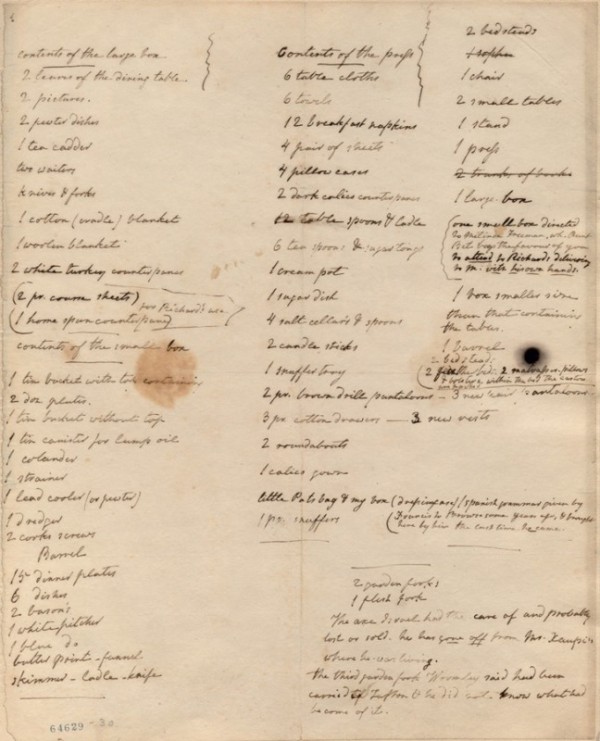 contents of the large box.
2 leaves of the dining table.
2 pictures.
2 pewter dishes
1 tea cadder
two waiters
knives & forks
1 cotton (cradle) blanket
1 woolen blanket
2 white turkey counterpanes
(2 pr. course sheets)
for Richard's use
(1 home spun counterpane)
contents of the small box
1 tin bucket with top containing
2 doz plates.
1 tin bucket without top
1 tin canister for lamp oil
1 colander
1 strainer
1 lead cooler (or pewter)
1 dredger
2 cork screws
Barrel
15 dinner plates
6 dishes
2 bason's
1 white pitcher
1 blue do
butter print - funnel
skimmer - ladle - knife
64629 - 30
Contents of the press
6 table cloths
6 towels
12 breakfast napkins
4 pair of sheets
4 pillow cases
2 dark calico counterpanes
12 table spoons & ladle
6 tea spoons & sugar tongs
1 cream pot
1 sugar dish
4 salt-cellars & spoons
2 candle sticks
1 snuffer tray
2 pr. brown drill pantaloons - 3 new pantaloons
3 pr cotton drawers - 3 new vests
2 roundabouts
1 calico gown
little Pats bag & my box (dressing case) / spanish grammar given by
Francis some years ago, & brought
here by him the last time he came.
1 pr. snuffers
2 bedsteads
1 sopha
1 chair
2 small tables
1 stand
1 press
2 trunks of books
1 large box
(one small box directed
to
Bet begs the favour of you
to attend to Richard's delivering
to M. with his own hands.
1 box smaller size
than that containing
the tables.
1 barrel
2 bedstead
2 bed. 2 mattrasses. pillows
& bolsters within the bed
2 garden forks
1 flesh fork
The axe Israel had the care of and probably
lost or sold. he has gone off from Mr.
where he was living.
the third garden fork Wormley said had been
carried to Tufton & he did not know what had
become of it.